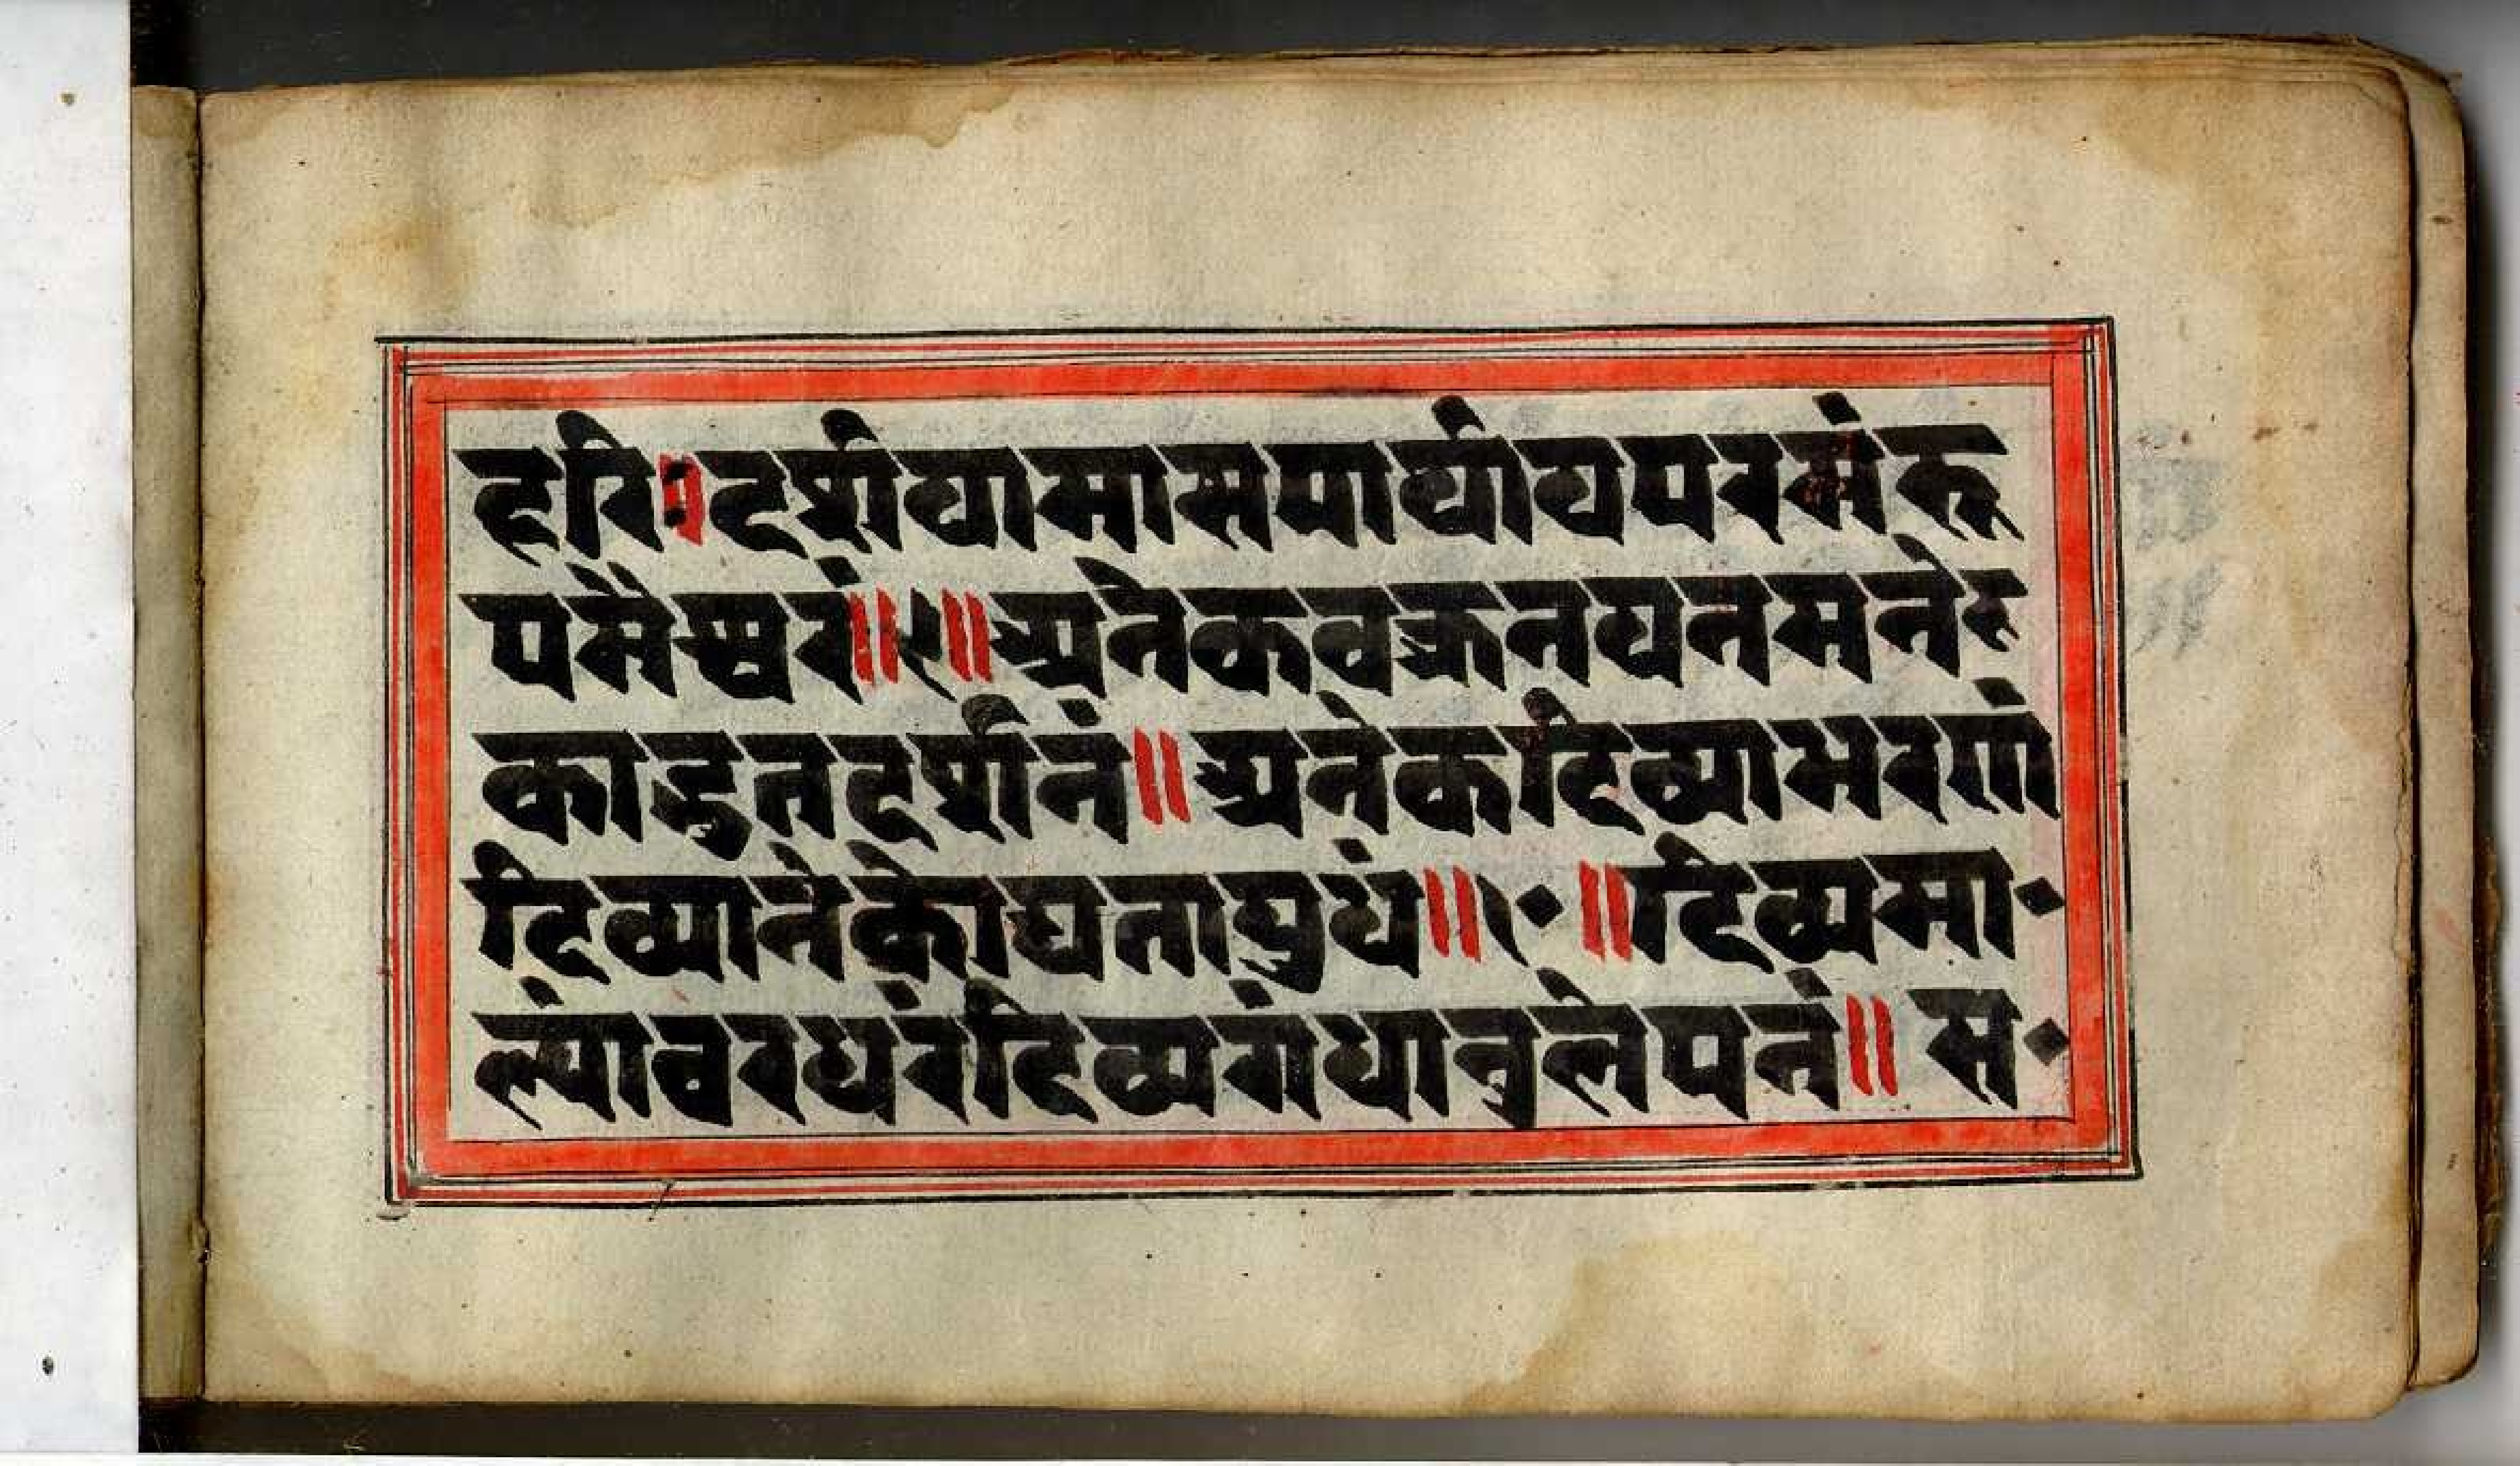 हरिः दर्शयामास पार्थाय परमं रू
पमैश्वरं॥९॥अनेकवक्रनयनमने
काद्भुतदर्शनं॥अनेकदिव्याभरणं
दिव्यानेकोद्यतायुधं॥१०॥दिव्यमा
ल्यांवरधरंदिव्यगंधानुलेपनं॥स